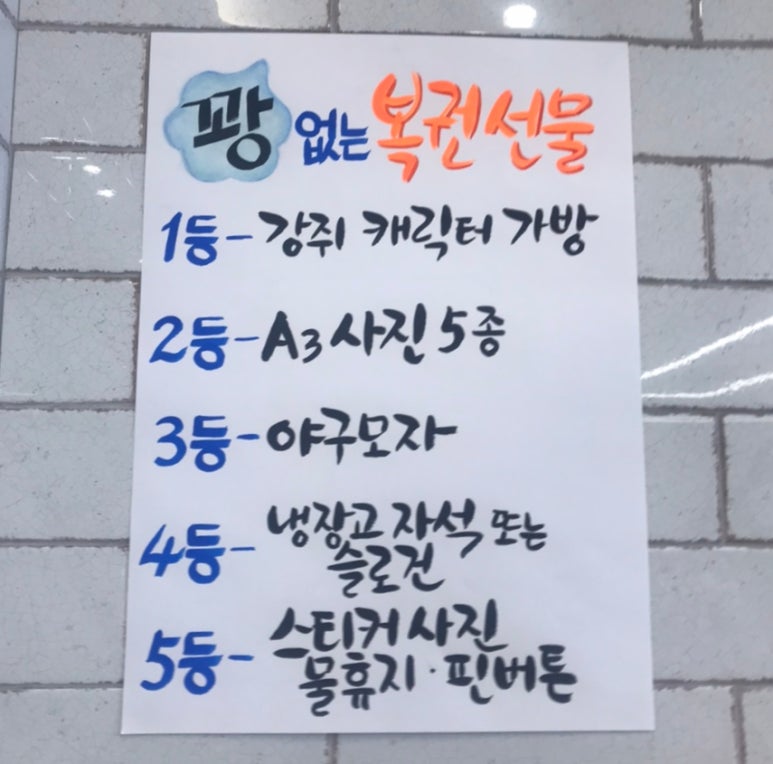 꽝 없는 복권선물
1등- 강쥐 캐릭터 가방
2등- A3 사진 5종
3등- 야구모자
4등- 냉장고 자석 또는
슬로건
5등- 스티커 사진
물휴지·핀버튼